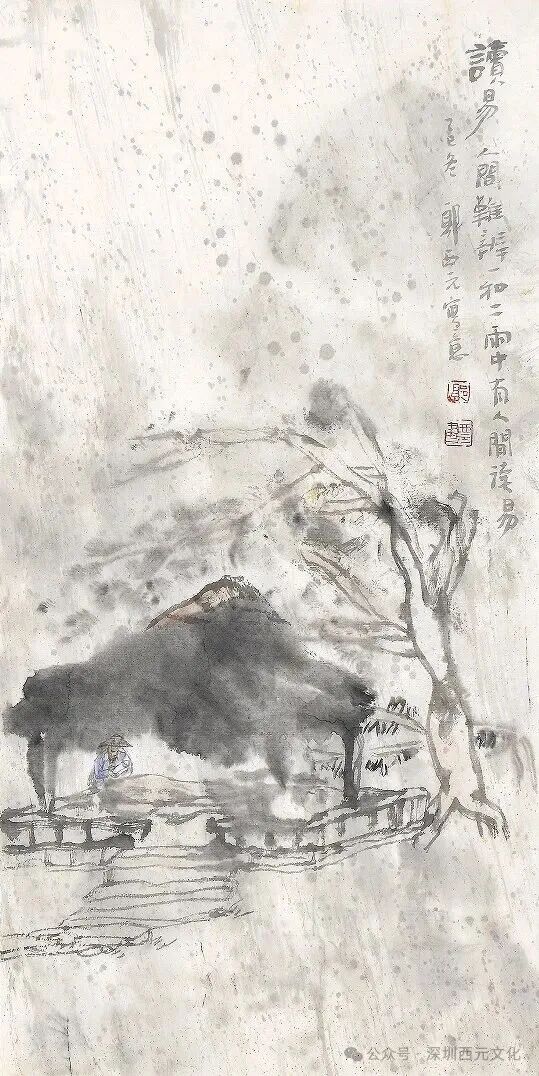 讀易人間難一初二雨中有人間易
冬 郭西元寫意
公众号 · 深圳西元文化